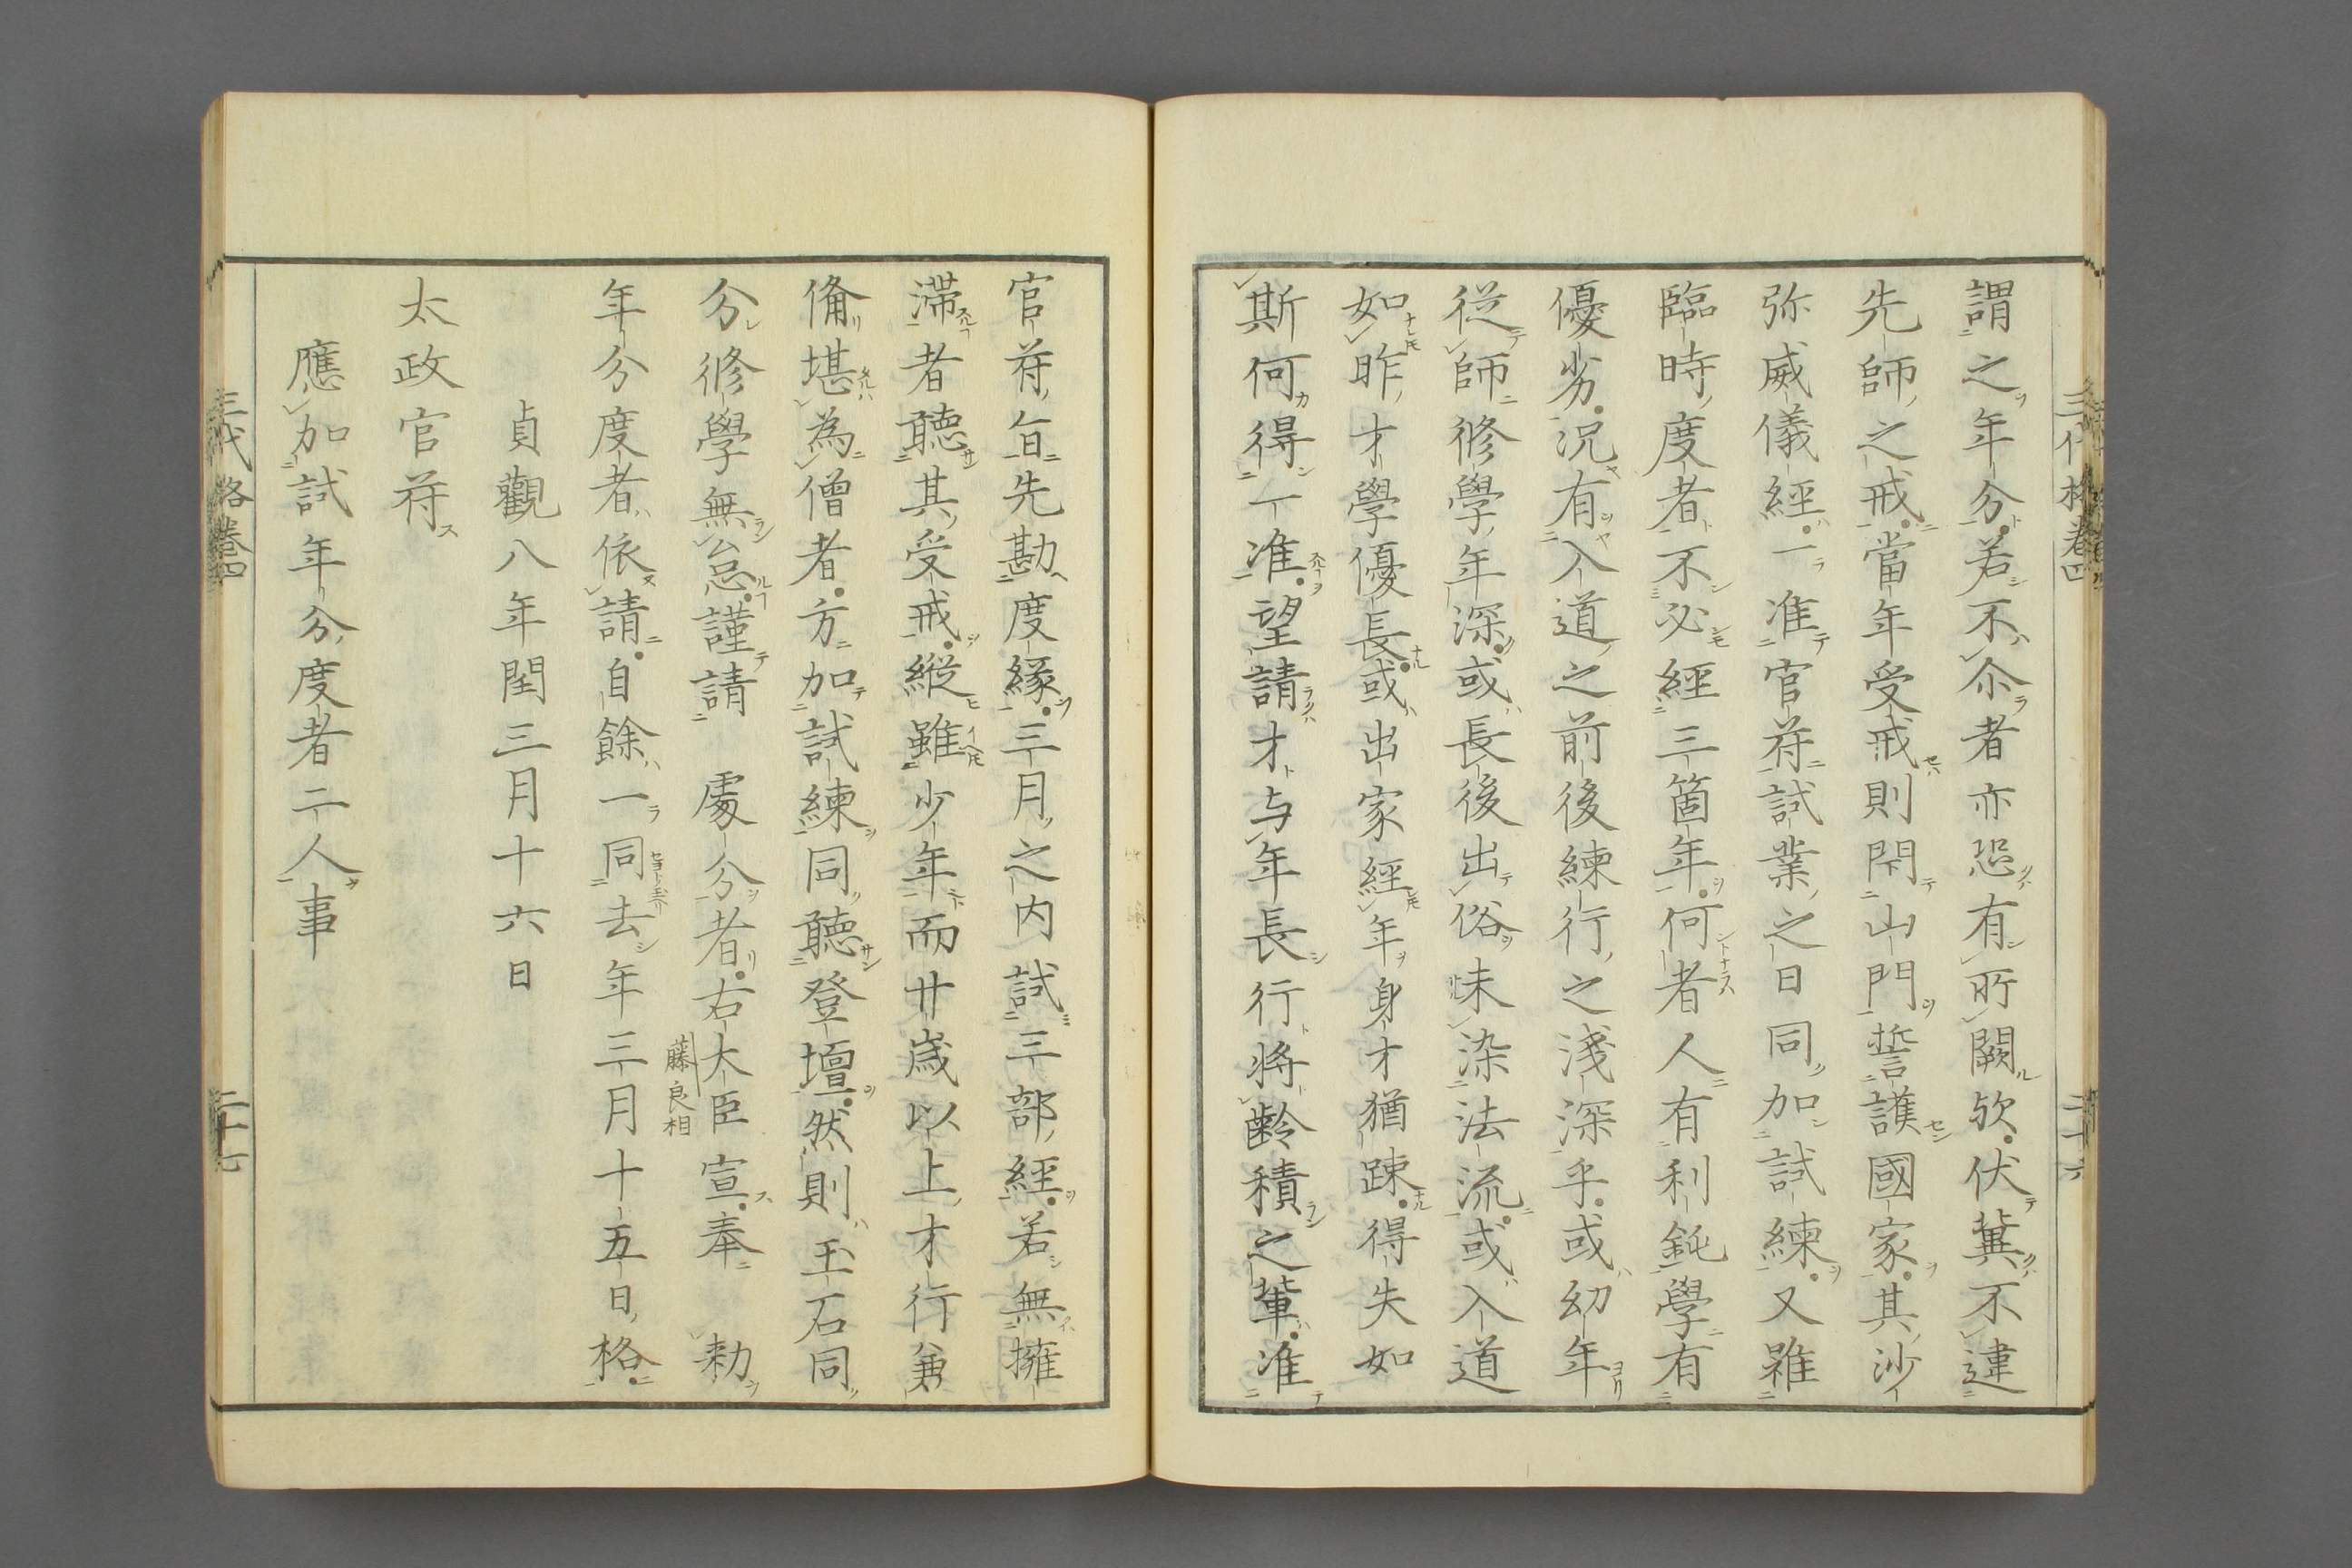 謂之年分若不尒者亦恐有所闕欤伏冀不違
先師之戒當年受戒則閇山門誓護國家其沙
弥威儀經一准官符試業之日同加試練又雖
臨時度者不必經三箇年何者人有利鈍學有
優劣況有入道之前後練行之淺深乎或幼年
従師修學年深或長後出俗味染法流或入道
如昨才學優長或出家經年身才猶踈得失如
斯何得一准望請才与年長行將齢積之輩准
官符旨先勘度縁三月之内試三部經若無擁
滞者聽其受戒縦雖少年而廿歳以上才行兼
備堪為僧者方加試練同聽登壇然則玉石同
分修學無怠謹請 處分者右大臣宣奉 勅
藤良相
年分度者依請自餘一同去年三月十五日格
貞觀八年閏三月十六日
太政官符
應加試年分度者二人事
三代格卷四
二十七